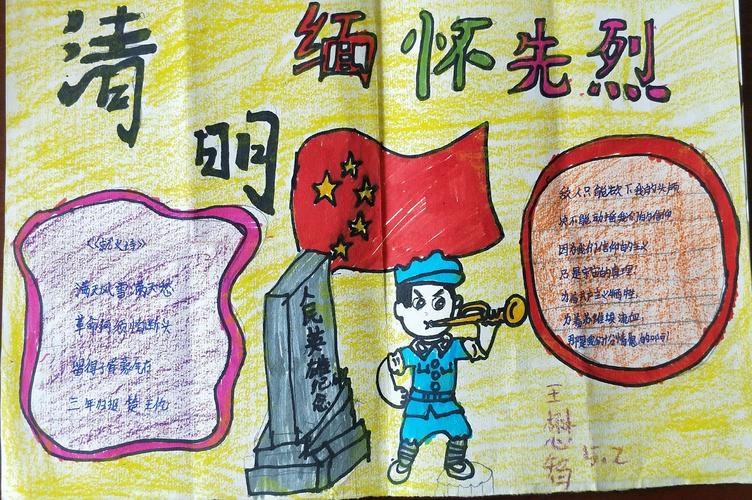 清明
缅怀先烈
《就义诗》
满天风雪满天愁
革命何须怕断头
留得子胥豪气在
三年归报楚王仇
人民英雄纪念
敌人只能砍下我们的头颅
决不能动摇我们的信仰
因为我们信仰的主义
乃是宇宙的真理
为着共产主义牺牲
为着苏维埃流血
那是我们十分情愿的啊
王
5.2